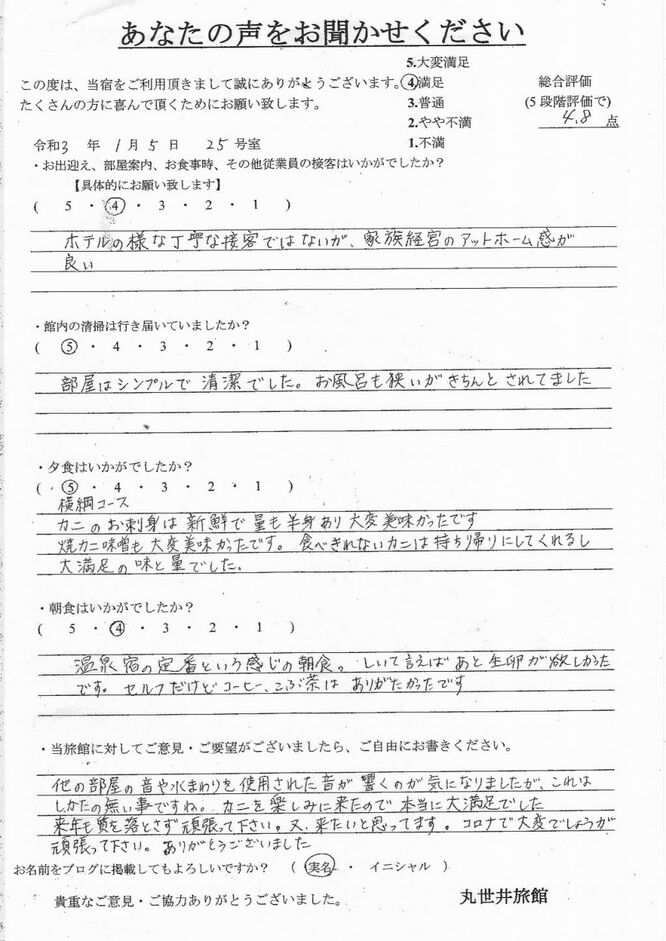 あなたの声をお聞かせください
この度は、当宿をご利用頂きまして誠にありがとうございます。
たくさんの方に喜んで頂くためにお願い致します。
5.大変満足
4.満足
3.普通
2.やや不満
1.不満
総合評価
(5段階評価で)
4.8 点
令和3 年 1月5日 25号室
・お出迎え、部屋案内、お食事時、その他従業員の接客はいかがでしたか？
【具体的にお願い致します】
( 5 ・ 4 ・ 3 ・ 2 ・ 1 )
ホテルの様な丁寧な接客ではないが、家族経営のアットホーム感が
良い
・館内の清掃は行き届いていましたか？
( 5 ・ 4 ・ 3 ・ 2 ・ 1 )
部屋はシンプルで清潔でした。お風呂も狭いがきちんとされてました
・夕食はいかがでしたか？
( 5 ・ 4 ・ 3 ・ 2 ・ 1 )
横綱コース
カニのお刺身は新鮮で量も半身あり大変美味かったです
焼カニ味噌も大変美味かったです。食べきれないカニは持ち帰りにしてくれるし
大満足の味と量でした。
・朝食はいかがでしたか？
( 5 ・ 4 ・ 3 ・ 2 ・ 1 )
温泉宿の定番という感じの朝食。しいて言えばあと生卵が欲しかった
です。セルフだけどコーヒー、こぶ茶はありがたかったです
・当旅館に対してご意見・ご要望がございましたら、ご自由にお書きください。
他の部屋の音や水まわりを使用された音が響くのが気になりましたが、これは
しかたの無い事ですね。カニを楽しみに来たので本当に大満足でした
来年も質を落とさず頑張って下さい。又、来たいと思ってます。コロナで大変でしょうが
頑張って下さい。ありがとうございました
お名前をブログに掲載してもよろしいですか？ ( 実名 ・ イニシャル )
貴重なご意見・ご協力ありがとうございました。
丸世井旅館